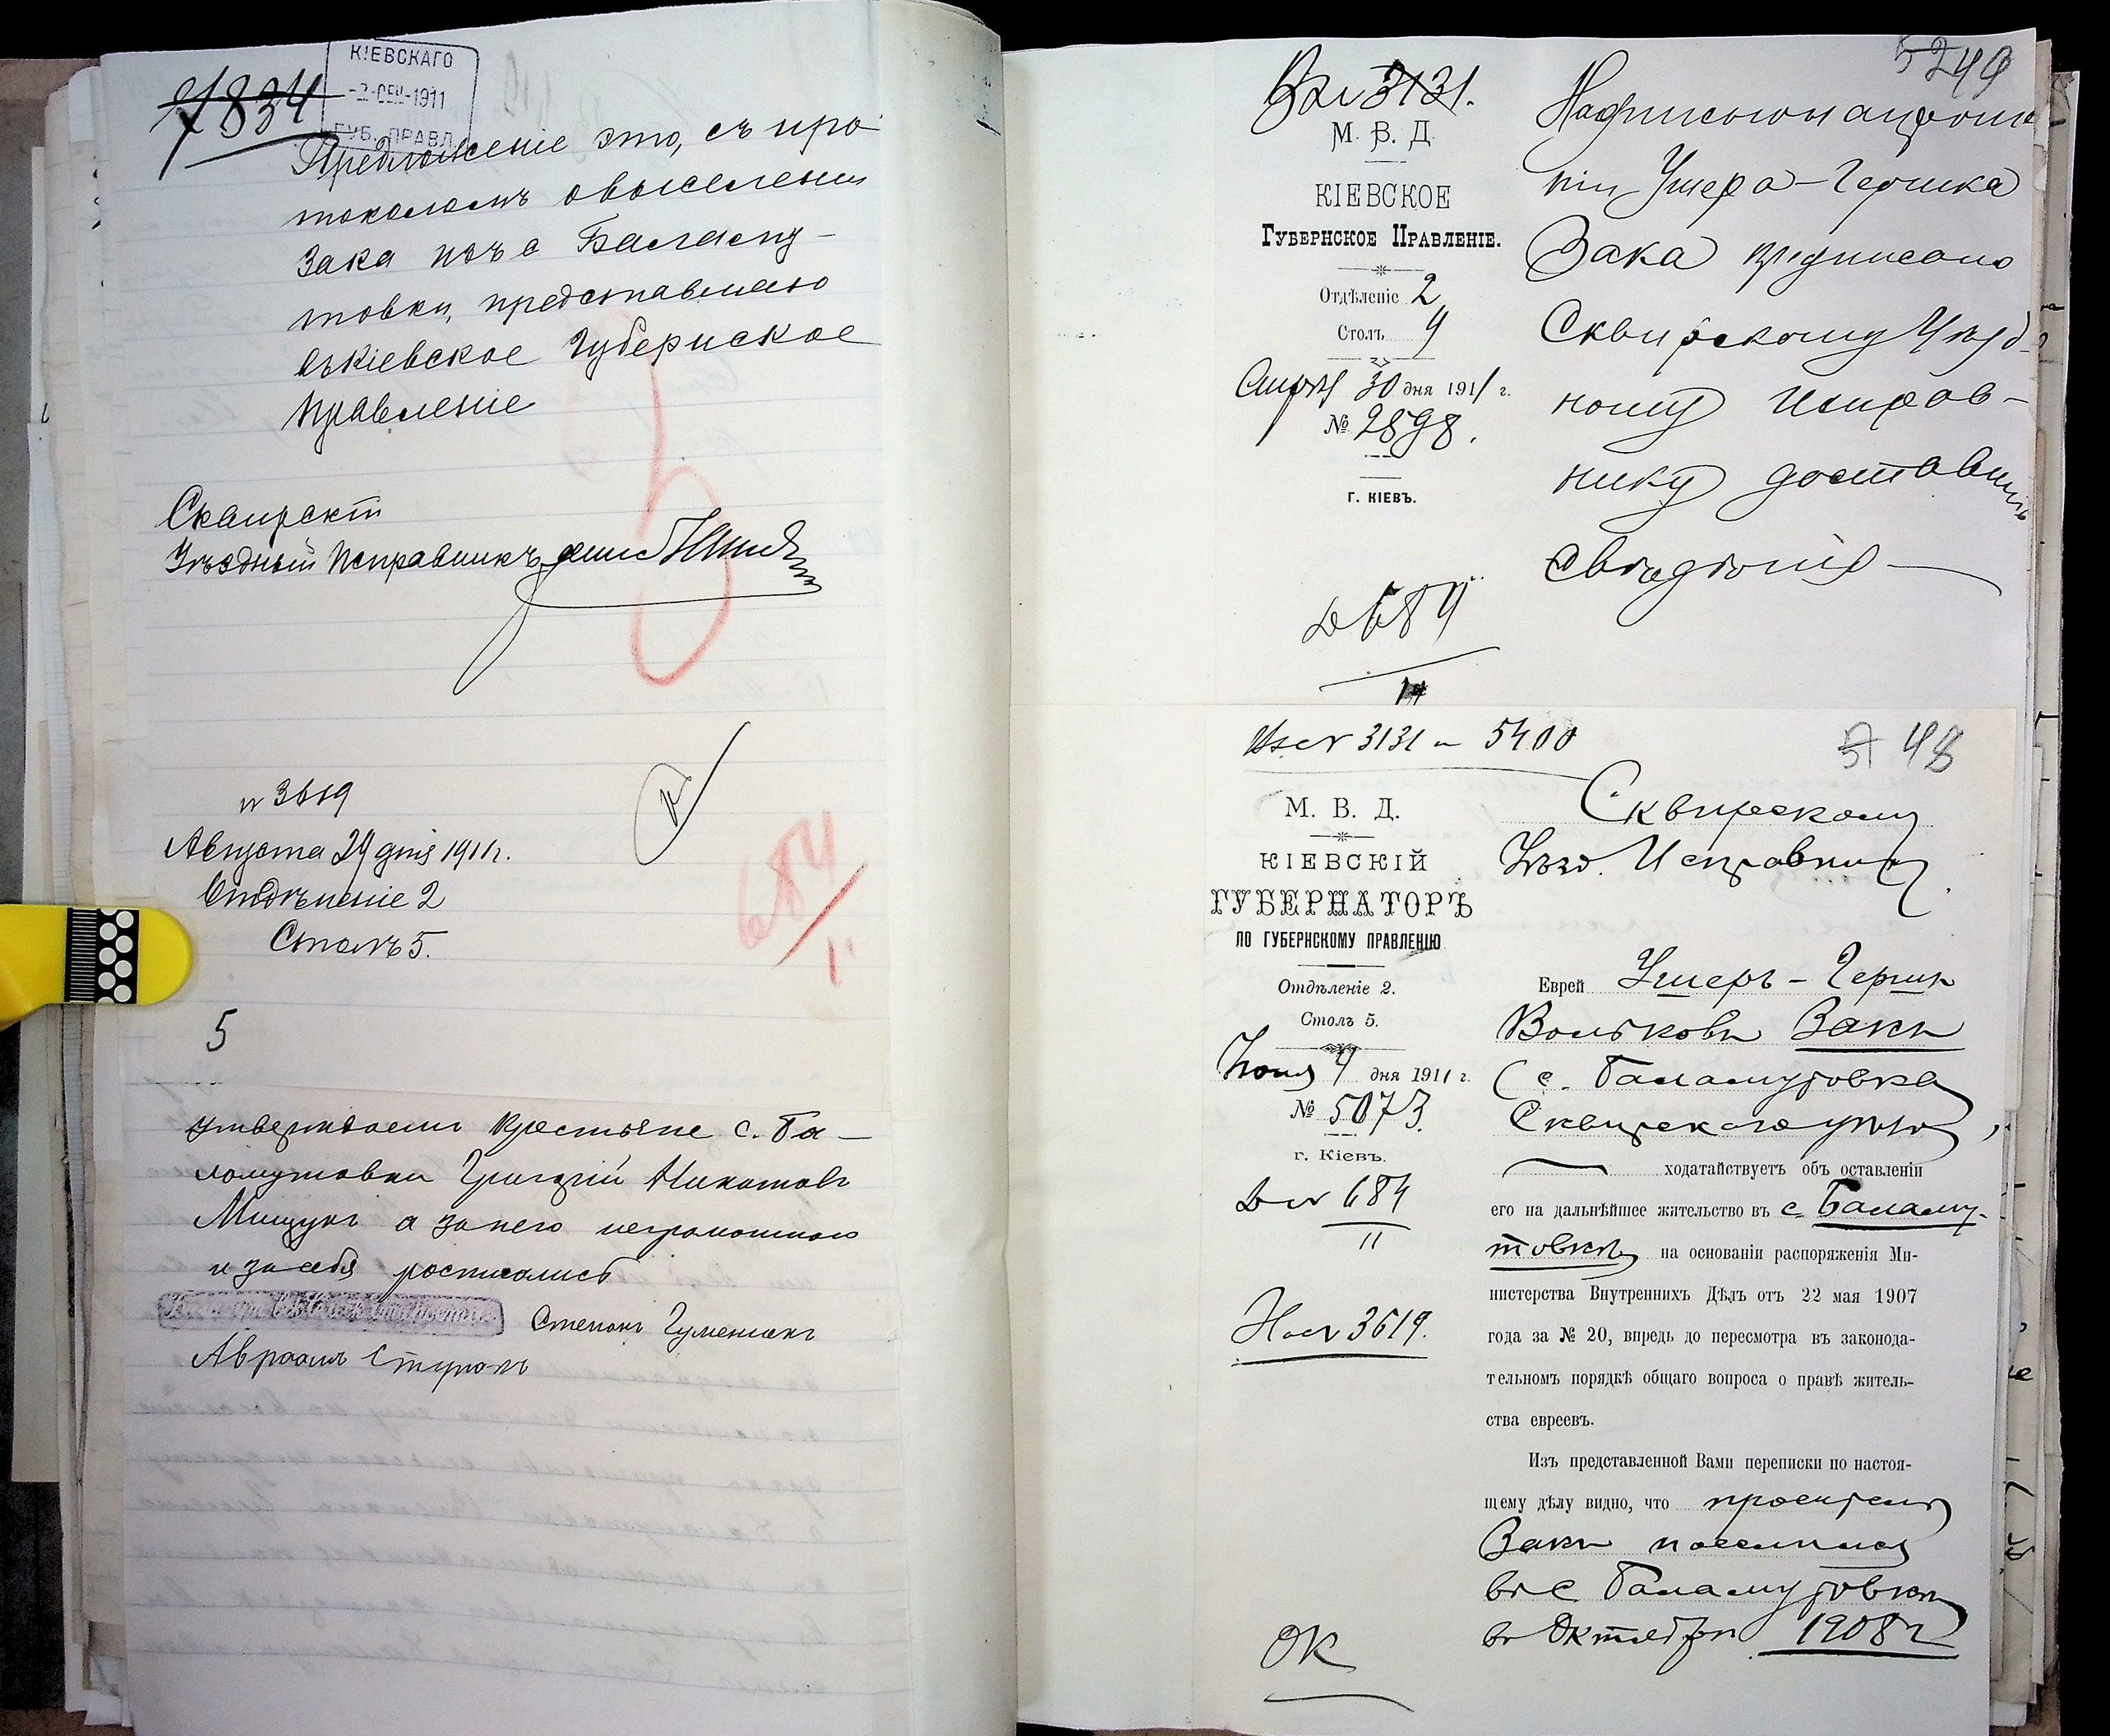 7834
КІЕВСКАГО
-2-СЕН-1911
ГУБ. ПРАВЛ.
Предложеніе это, съ про-
токоломъ о выселеніи
Зака изъ с Баламу-
товки, представляю
въ Кіевское Губернское
Правленіе
Сквирскій
Уѣздный Исправникъ
№ 3619
Августа 24 дня 1911 г.
Отдѣленіе 2
Столъ 5.
684
5
крестьяне с. Ба-
ламутовки Григорій
Мищукъ а за него неграмотнаго
и за себя росписались
Степанъ Гуменюкъ
Авраамъ
Вх № 3131.
5249
М. В. Д.
КІЕВСКОЕ
ГУБЕРНСКОЕ ПРАВЛЕНІЕ.
Отдѣленіе 2
Столъ 4
Апрѣля 30 дня 1911 г.
№ 2898.
Г. КІЕВЪ.
Д 684
14
На прошe-
ніи Ушера-Гершка
Зака предписано
Сквирскому Уѣзд-
ному Исправ-
нику доставить
свѣдѣнія
Вх № 3131 и 5400
48
М. В. Д.
КІЕВСКІЙ
ГУБЕРНАТОРЪ
ПО ГУБЕРНСКОМУ ПРАВЛЕНІЮ
Отдѣленіе 2.
Столъ 5.
4 дня 1911 г.
№ 5073.
г. Кіевъ.
Д № 684
11
На № 3619.
ОК
Сквирскому
Уѣзд. Исправнику.
Еврей Ушеръ-Гершк
Вольковъ Закъ
(с. Баламутовка
Сквирскаго уѣзда),
ходатайствуетъ объ оставленіи
его на дальнѣйшее жительство въ с. Баламу-
товкѣ на основаніи распоряженія Ми-
нистерства Внутреннихъ Дѣлъ отъ 22 мая 1907
года за № 20, впредь до пересмотра въ законода-
тельномъ порядкѣ общаго вопроса о правѣ житель-
ства евреевъ.
Изъ представленной Вами переписки по настоя-
щему дѣлу видно, что проситель
Закъ поселился
въ с Баламутовкѣ
въ Октябрѣ 1908 г